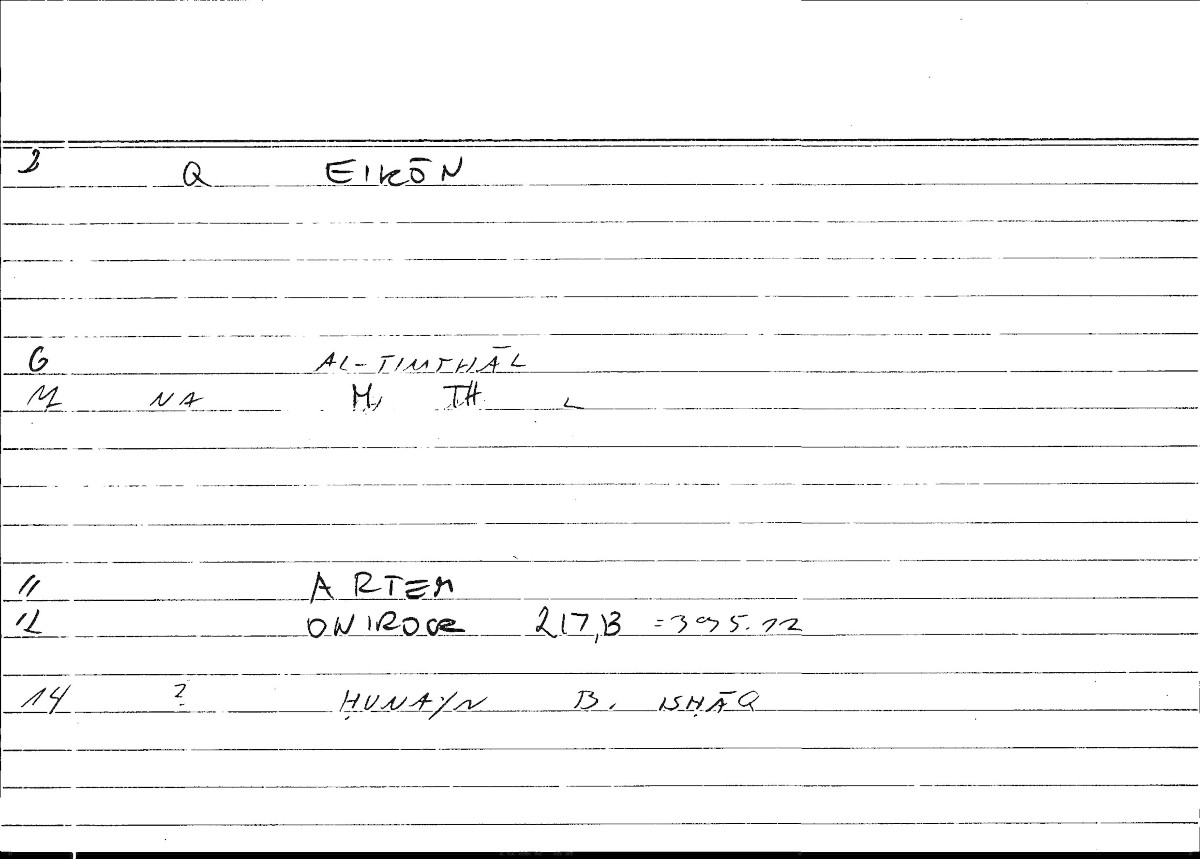 2 Q EIKŌN
6 AL-TIMTHĀL
M NA M, TH L
11 ARTEM
12 ONIROCR 217,13 =395.12
14 ? ḤUNAYN B. ISḤĀQ